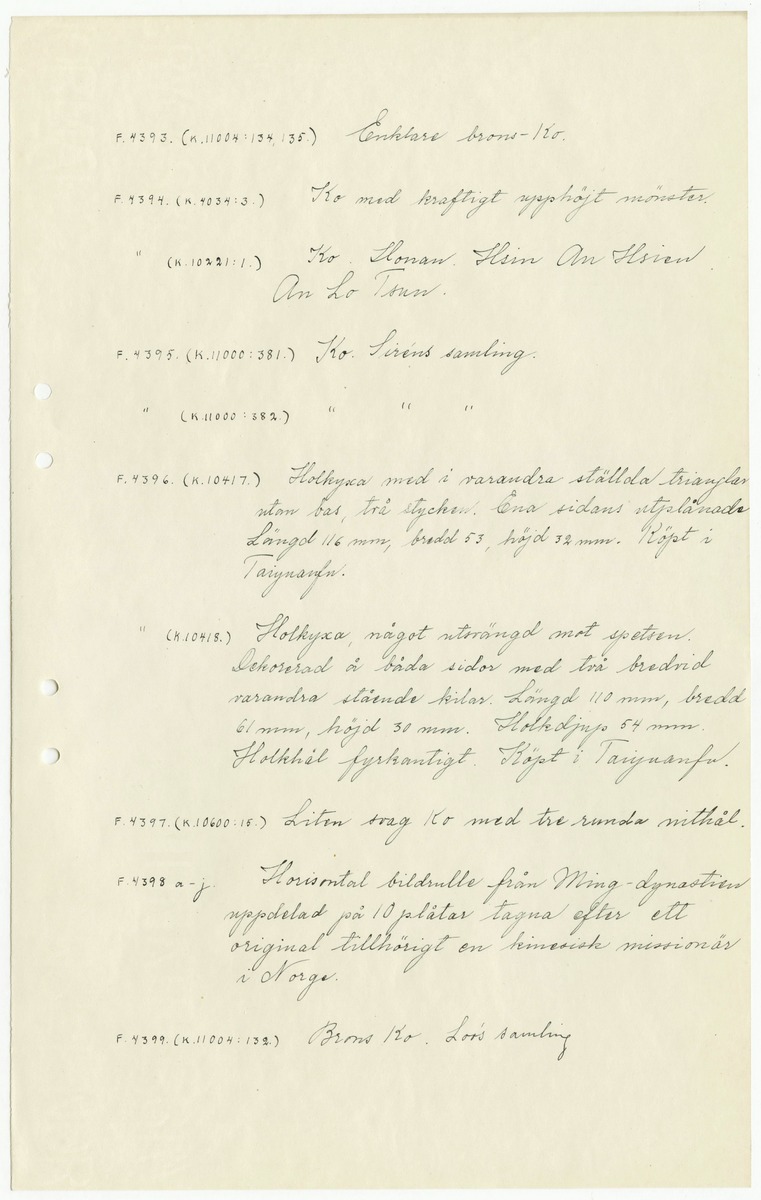 F.4393. (K.11004:134,135.) Enklare brons-Ko.
F.4394. (K.4034:3.) Ko med kraftigt upphöjt mönster.
" (K.10221:1.) Ko. Honan. Hsin An Hsien
An Lo Tsun.
F.4395. (K.11000:381.) Ko. Siréns samling.
" (K.11000:382.) " " "
F.4396. (K.10417.) Holkyxa med i varandra ställda trianglar
utan bas, två stycken. Ena sidans utplånade
Längd 116 mm, bredd 53, höjd 32 mm. Köpt i
Taiyuanfu.
" (K.10418.) Holkyxa, något utsvängd mot spetsen.
Dekorerad å båda sidor med två bredvid
varandra stående kilar. Längd 110 mm, bredd
61 mm, höjd 30 mm. Holkdjup 54 mm.
Holkhål fyrkantigt. Köpt i Taiyuanfu.
F.4397. (K.10600:15.) Liten svag Ko med tre runda nithål.
F.4398 a-j. Horisontal bildrulle från Ming-dynastien
uppdelad på 10 plåtar tagna efter ett
original tillhörigt en kinesisk missionär
i Norge.
F.4399. (K.11004:132.) Brons Ko. Loo's samling